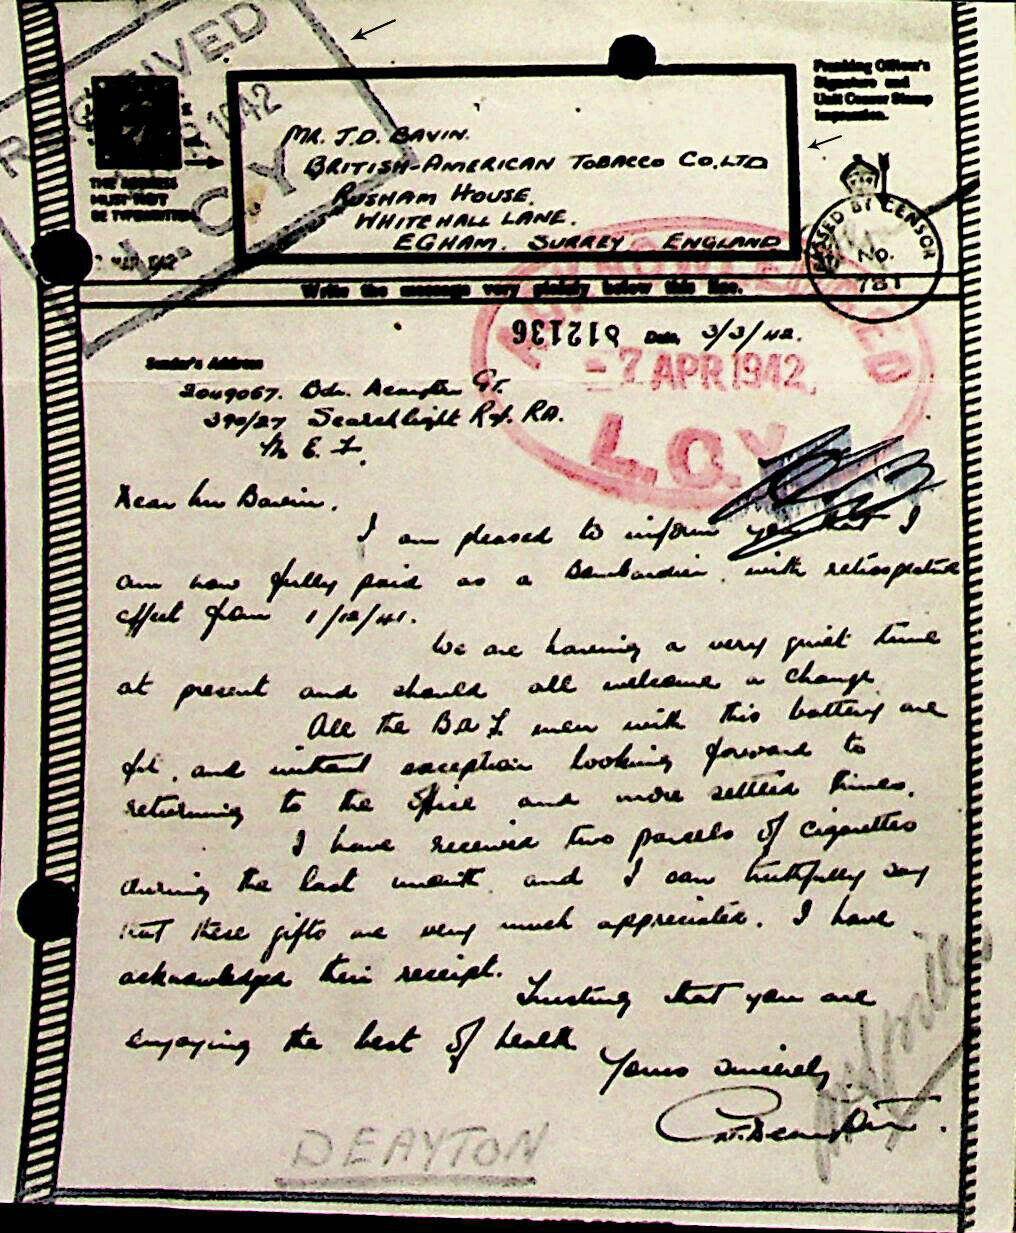 RECEIVED
1942
L.O.Y
THE ADDRESS
MUST NOT
BE TYPEWRITTEN
MR. J.D. BAVIN.
BRITISH-AMERICAN TOBACCO CO. LTD
RUSHAM HOUSE.
WHITEHALL LANE.
EGHAM. SURREY ENGLAND
Franking Officer's
Signature and
Unit Censor Stamp
Impression.
PASSED BY CENSOR
No.
781
Write the message very plainly below this line.
ACKNOWLEDGED
- 7 APR 1942
L.O.Y.
812136
Date, 3/3/42.
Sender's Address
2049067. Bdr. Deayton
390/27 Searchlight Rgt. RA.
M. E. F.
Dear Mr Bavin.
I am pleased to inform you that I
am now fully paid as a Bombardier, with retrospective
effect from 1/12/41.
We are having a very quiet time
at present and should all welcome a change
All the B.A.T. men with this battery are
fit, and without exception looking forward to
returning to the office and more settled times.
I have received two parcels of cigarettes
during the last month, and I can truthfully say
that these gifts are very much appreciated. I have
acknowledged their receipt.
Trusting that you are
enjoying the best of health
Yours sincerely.
Deayton.
DEAYTON